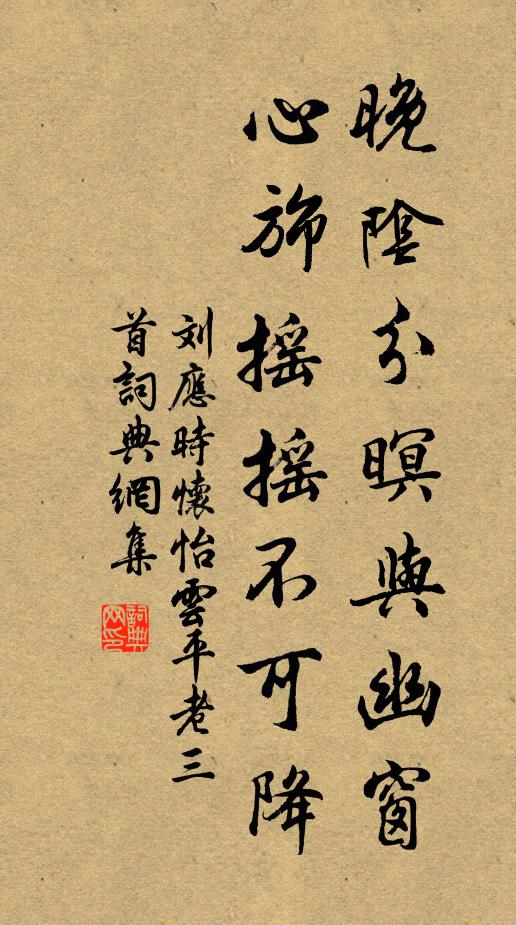 晚陰分暝與幽窗
心旆搖搖不可降
刘應時懷怡雲平老三
首詞典網集
詞典网印